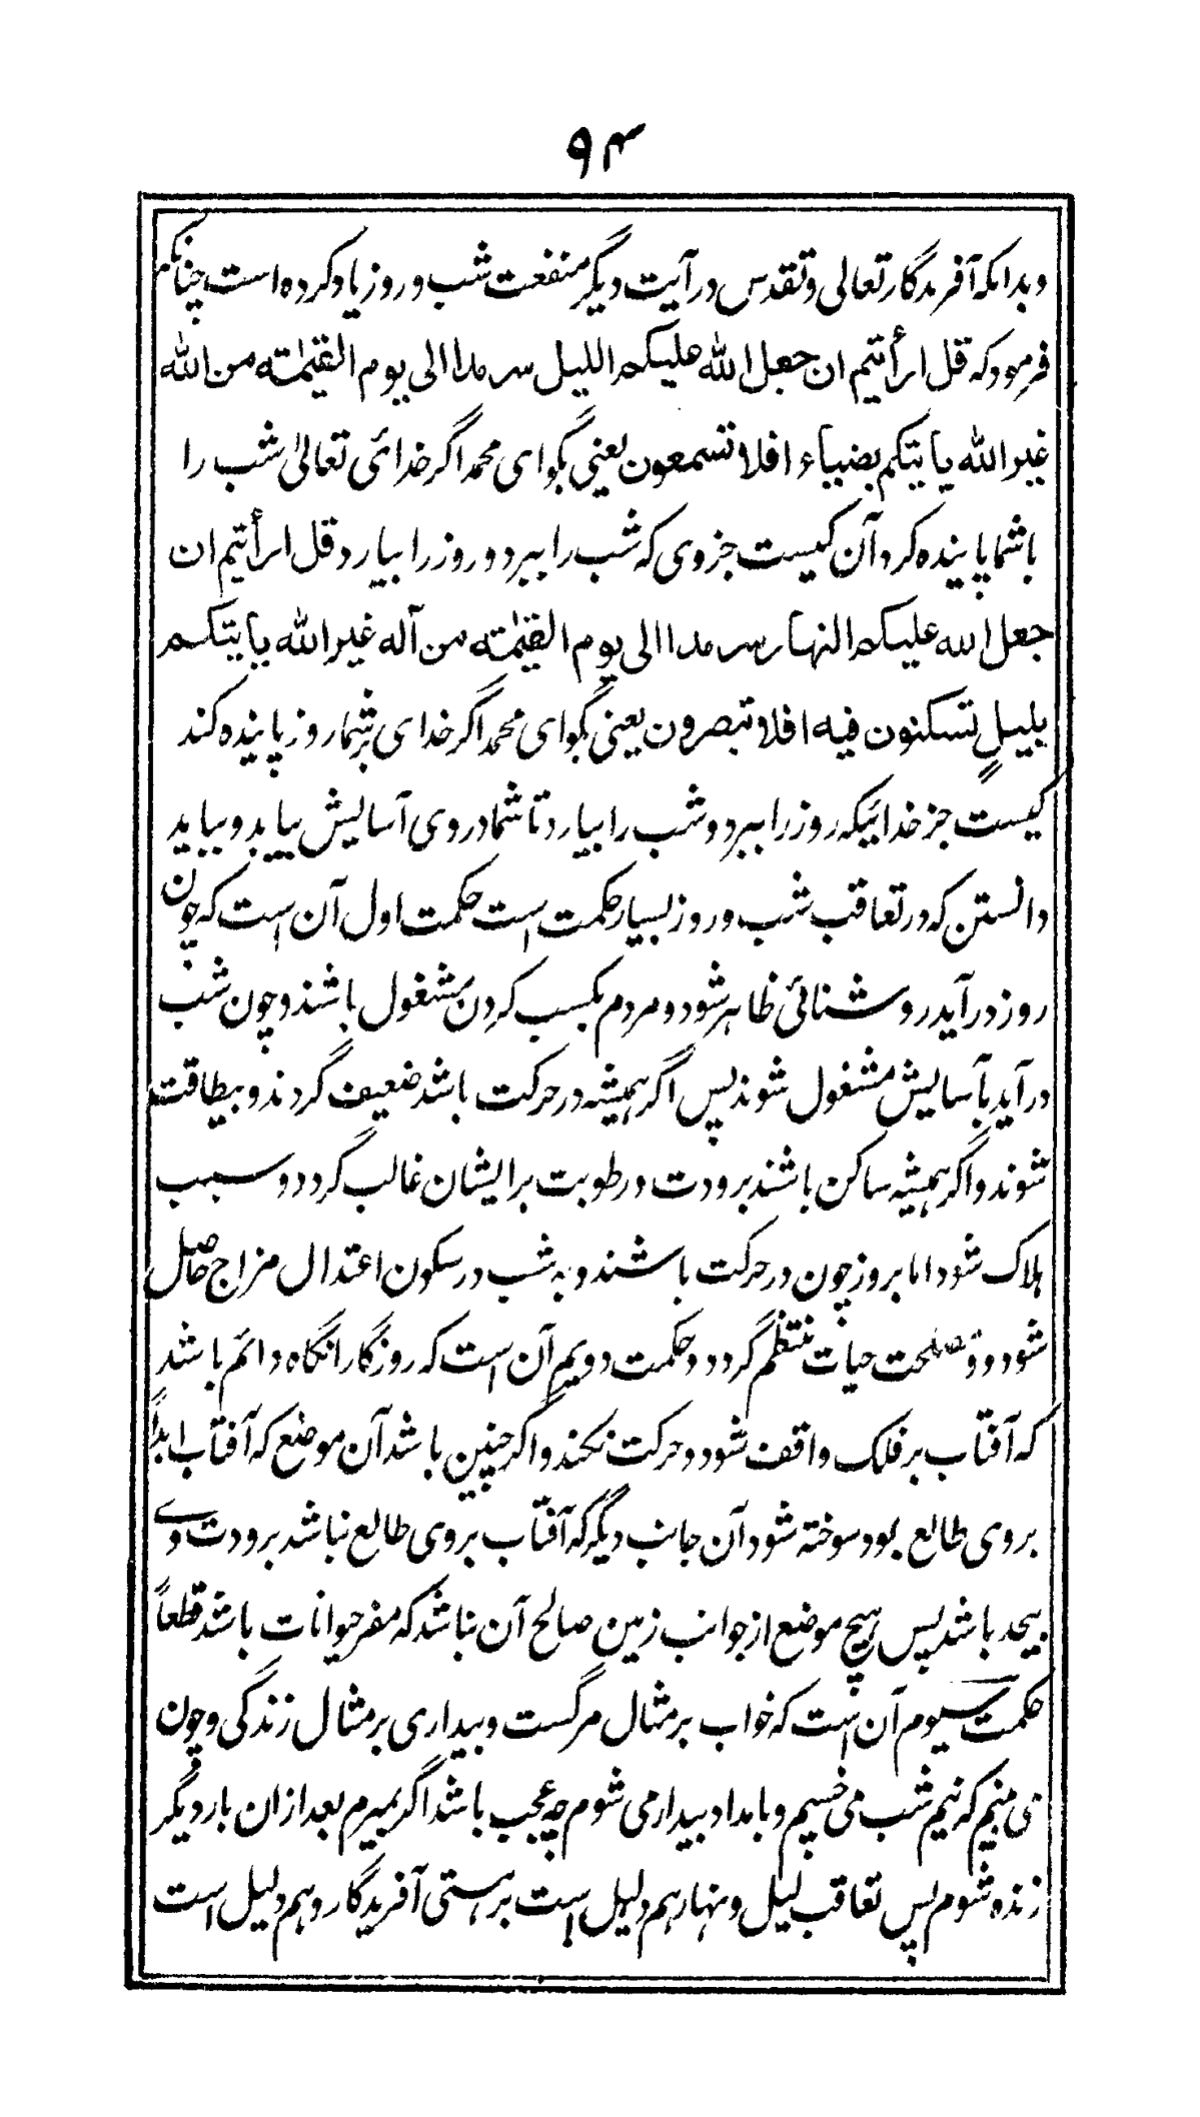 ۹۴
و بدانکه آفریدگار تعالی و تقدس در آیت دیگر منفعت شب و روز یاد کرده است چنانکه
فرمود که قل ارأیتم ان جعل الله علیکم اللیل سرمدا الی یوم القیمٰة من اله
غیر الله یأیتکم بضیاء افلا تسمعون یعنی بگو ای محمد اگر خدائی تعالیٰ شب را
با شما پاینده کرد آن کیست جز وی که شب را ببرد و روز را بیارد قل ارأیتم ان
جعل الله علیکم النهار سرمدا الی یوم القیمٰة من آله غیر الله یأیتکم
بلیلٍ تسکنون فیه افلا تبصرون یعنی بگو ای محمد اگر خدای بر شما روز پاینده کند
کیست جز خدائیکه روز را ببرد و شب را بیارد تا شما در وی آسایش بیابید و بباید
دانستن که در تعاقب شب و روز بسیار حکمت است حکمت اول آن است که چون
روز درآید روشنائی ظاهر شود و مردم بکسب کردن مشغول باشند و چون شب
درآید بآسایش مشغول شوند پس اگر همیشه در حرکت باشد ضعیف گردند و بیطاقت
شوند و اگر همیشه ساکن باشند برودت و رطوبت بر ایشان غالب گردد و سبب
هلاک شود اما بروز چون در حرکت باشند و به شب در سکون اعتدال مزاج حاصل
شود و مصلحت حیات منتظم گردد و حکمت دویم آن است که روزگار انگاه دائم باشد
که آفتاب بر فلک واقف شود و حرکت نکند و اگر چنین باشد آن موضع که آفتاب ابداً
بروی طالع بود سوخته شود آن جانب دیگر که آفتاب بروی طالع نباشد برودت وے
بیحد باشد پس هیچ موضع از جوانب زمین صالح آن نباشد که مقر حیوانات باشد قطعاً
حکمت سیوم آن است که خواب بر مثال مرگست و بیداری بر مثال زندگی و چون
می بینم که نیم شب می خسپم و بامداد بیدار می شوم چه عجب باشد اگر بمیرم بعد ازان بار دیگر
زنده شوم پس تعاقب لیل و نهار هم دلیل است بر هستی آفریدگار و هم دلیل است